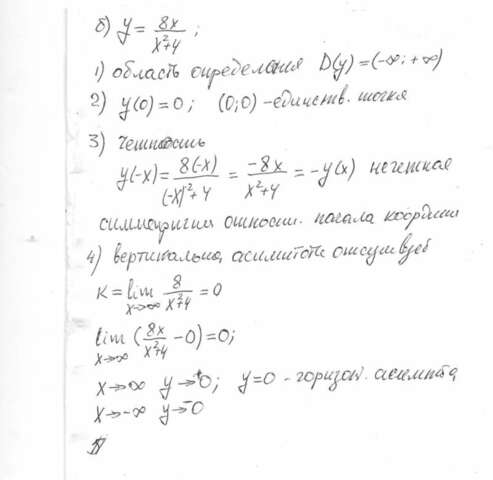 б) y = 8x / x²+4 ;
1) область определения D(y) = (-∞; +∞)
2) y(0) = 0; (0;0) - единств. точка
3) четность
y(-x) = 8(-x) / (-x)²+4 = -8x / x²+4 = -y(x) нечетная
симметричн относит. начала координ
4) вертикальн. асимптоты отсутств
K = lim x→∞ 8 / x²+4 = 0
lim x→∞ (8x / x²+4 - 0) = 0;
x→∞ y→+0; y=0 - горизон. асимпта
x→-∞ y→-0